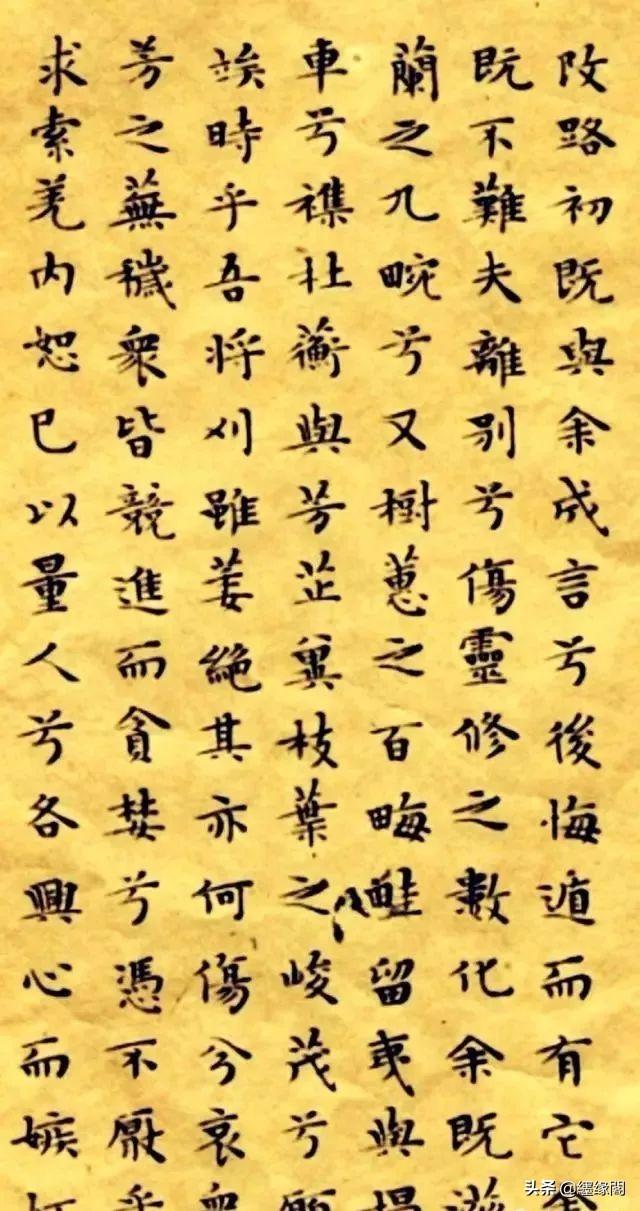 改路初既與余成言兮後悔遁而有它余
既不難夫離別兮傷靈修之數化余既滋
蘭之九畹兮又樹蕙之百畮畦留夷與揭
車兮襍杜蘅與芳芷冀枝葉之峻茂兮願
竢時乎吾將刈雖萎絶其亦何傷兮哀衆
芳之蕪穢衆皆競進而貪婪兮憑不厭乎
求索羌内恕已以量人兮各興心而嫉
头条 @缘閣